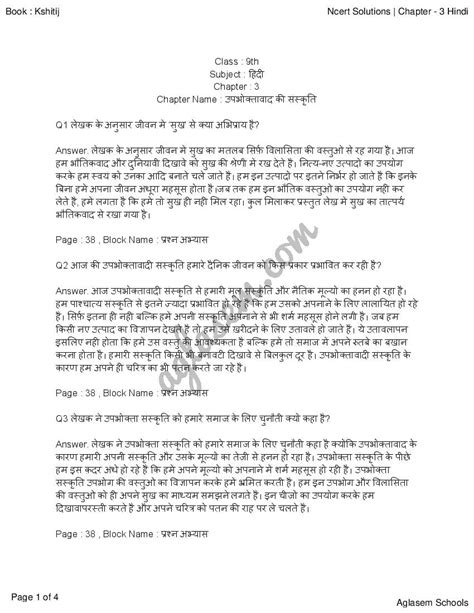 Book : Kshitij
Ncert Solutions | Chapter - 3 Hindi
Class : 9th
Subject : हिंदी
Chapter : 3
Chapter Name : उपभोक्तावाद की संस्कृति
Q1 लेखक के अनुसार जीवन मे 'सुख' से क्या अभिप्राय है?
Answer. लेखक के अनुसार जीवन में सुख का मतलब सिर्फ़ विलासिता की वस्तुओं से रह गया है। आज
हम भौतिकवाद और दुनियावी दिखावे को सुख की श्रेणी में रख देते है। नित्य-नए उत्पादों का उपयोग
करके हम स्वयं को उनका आदि बनाते चले जाते हैं। हम इन उत्पादों पर इतने निर्भर हो जाते हैं कि इनके
बिना हमे अपना जीवन अधूरा महसूस होता है।जब तक हम इन भौतिक वस्तुओं का उपयोग नही कर
लेते है, हमे लगता है कि हमे तो सुख ही नही मिल रहा। कुल मिलाकर प्रस्तुत लेख में सुख का तात्पर्य
भौतिकवाद से रखा गया है।
Page : 38 , Block Name : प्रश्न अभ्यास
Q2 आज की उपभोक्तावादी संस्कृति हमारे दैनिक जीवन को किस प्रकार प्रभावित कर रही है?
Answer. आज उपभोक्तावादी संस्कृति से हमारी मूल संस्कृति और नैतिक मूल्यों का हनन हो रहा है।
हम पाश्चात्य संस्कृति से इतने ज्यादा प्रभावित हो रहे है कि हम उसको अपनाने के लिए लालायित हो रहे
है। सिर्फ़ इतना ही नही बल्कि हमे अपनी संस्कृति अपनाने से भी शर्म महसूस होने लगी है। जब हम
किसी नए उत्पाद का विज्ञापन देखते है तो हम उसे खरीदने के लिए उतावले हो जाते है। ये उतावलापन
इसलिए नही होता कि हमे उस वस्तु की आवश्यकता है बल्कि हमे तो समाज मे अपने रुतबे का बखान
करना होता है। हमारी संस्कृति किसी भी बनावटी दिखावे से बिलकुल दूर है। उपभोक्तावादी संस्कृति के
कारण हम अपने ही चरित्र का भी पतन करते जा रहे है।
Page : 38 , Block Name : प्रश्न अभ्यास
Q3 लेखक ने उपभोक्ता संस्कृति को हमारे समाज के लिए चुनौती क्यो कहा है?
Answer. लेखक ने उपभोक्ता संस्कृति को हमारे समाज के लिए चुनौती कहा है क्योकि उपभोक्तावाद के
कारण हमारी अपनी संस्कृति और उसके मूल्यो का तेजी से हनन हो रहा है। उपभोक्ता संस्कृति के पीछे
हम इस कदर अंधे हो रहे है कि हमे अपने मूल्यो को अपनाने मे शर्म महसूस हो रही है। उपभोक्ता
संस्कृति उपभोग की वस्तुओ का विज्ञापन करके हमे भ्रमित करती है। हम इन उपभोग और विलासिता
की वस्तुओ को ही अपने सुख का माध्यम समझने लगते है। इन चीजो का उपभोग करके हम
दिखावापरस्ती करते है और अपने चरित्र को पतन की राह पर ले चलते है।
Page : 38 , Block Name : प्रश्न अभ्यास
aglasem.com
Page 1 of 4
Aglasem Schools